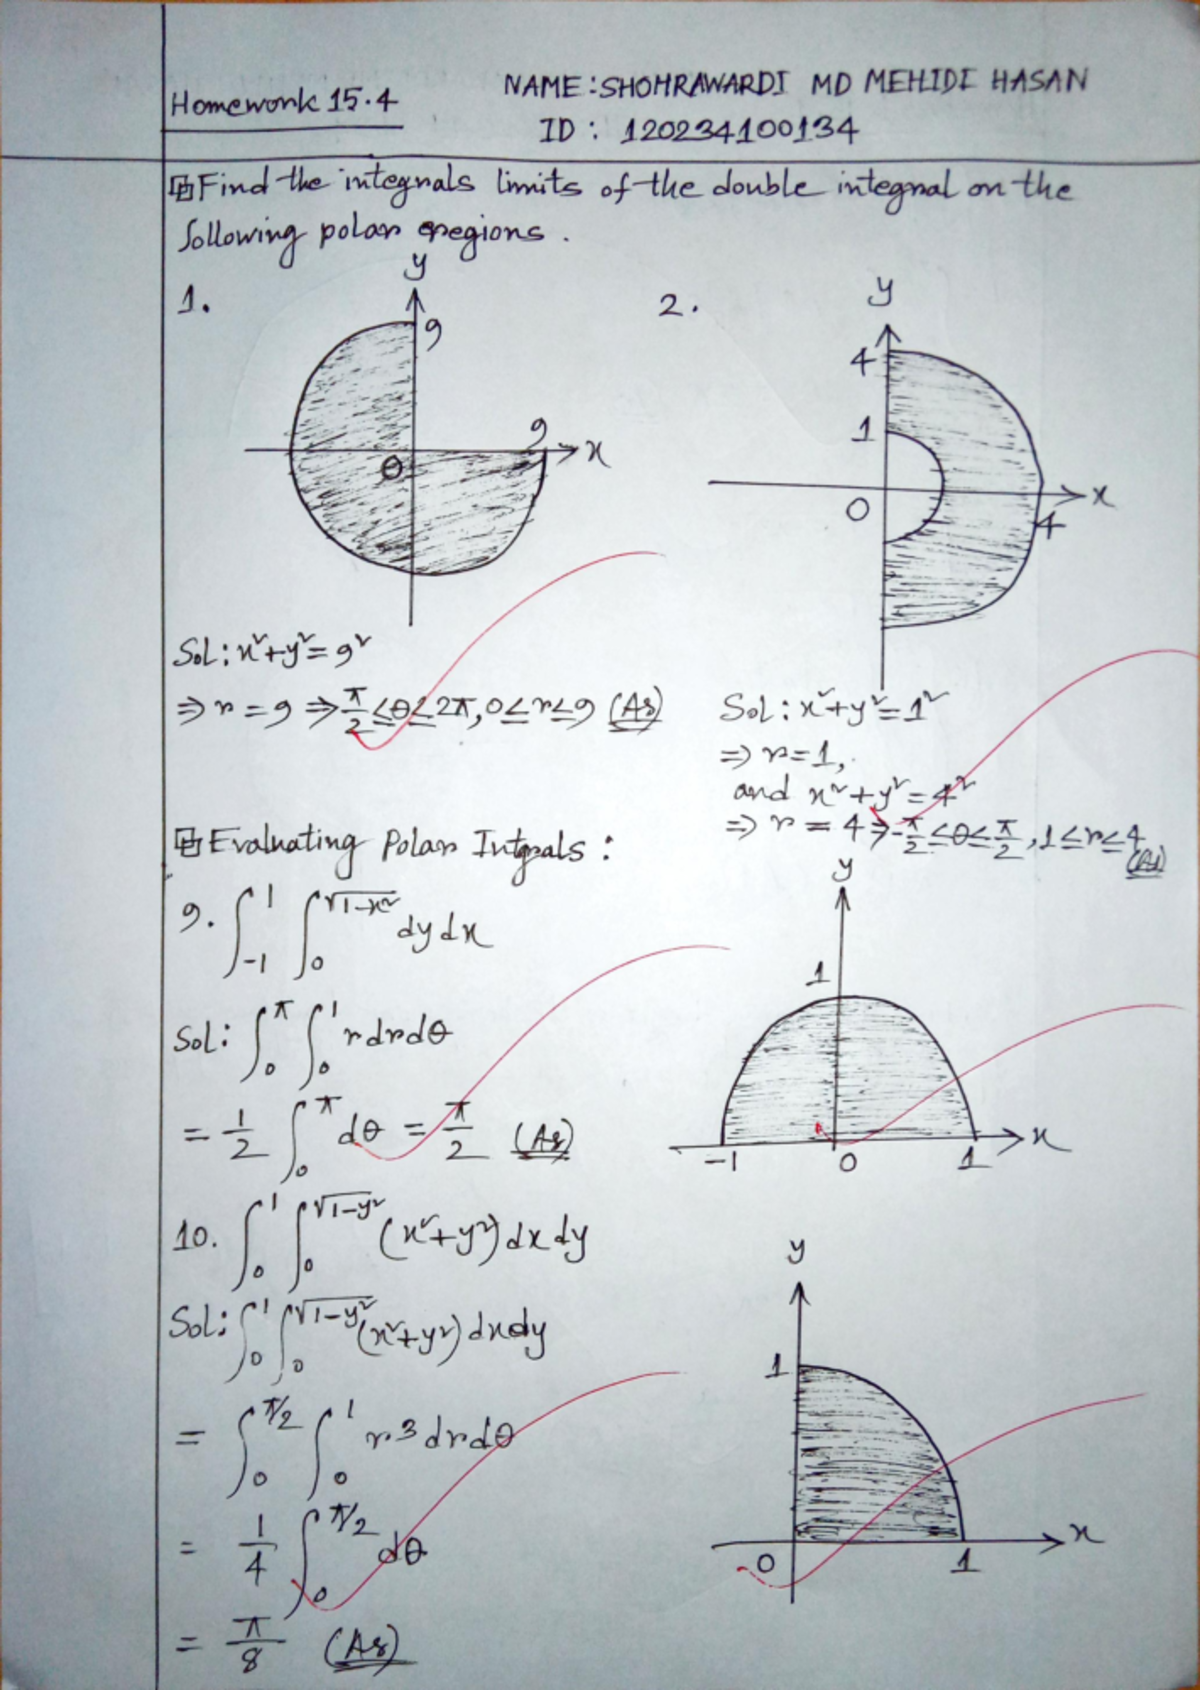 Homework 15.4
NAME : SHOHRAWARDI MD MEHIDI HASAN
ID : 120234100134
Find the integrals limits of the double integral on the
following polar regions .
1.
y
9
9
x
0
2.
y
4
1
0
x
4
Sol : x²+y² = 9²
⇒ r = 9 ⇒ π/2 ≤ θ ≤ 2π, 0 ≤ r ≤ 9 (As)
Sol : x²+y² = 1²
⇒ r = 1,
and x²+y² = 4²
⇒ r = 4 ⇒ -π/2 ≤ θ ≤ π/2 , 1 ≤ r ≤ 4
(As)
Evaluating Polar Intgrals :
9. ∫_{-1}^{1} ∫_{0}^{√1-x²} dy dx
Sol: ∫_{0}^{π} ∫_{0}^{1} r dr dθ
= 1/2 ∫_{0}^{π} dθ = π/2 (As)
y
1
-1
0
1
x
10. ∫_{0}^{1} ∫_{0}^{√1-y²} (x²+y²) dx dy
Sol: ∫_{0}^{1} ∫_{0}^{√1-y²} (x²+y²) dx dy
= ∫_{0}^{π/2} ∫_{0}^{1} r³ dr dθ
= 1/4 ∫_{0}^{π/2} dθ
= π/8 (As)
y
1
0
1
x